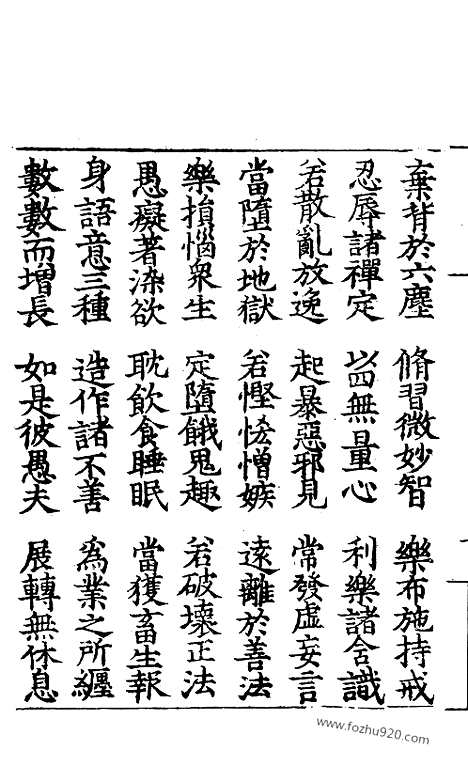 棄背於六塵 脩習微妙智 樂布施持戒
忍辱諸禪定 以四無量心 利樂諸含識
若散亂放逸 起暴惡邪見 常發虛妄言
當墮於地獄 若慳悋憎嫉 遠離於善法
樂損惱眾生 定墮餓鬼趣 若破壞正法
愚癡著染欲 耽飲食睡眠 當獲畜生報
身語意三種 造作諸不善 為業之所纏
數數而增長 如是彼愚夫 展轉無休息
www.fozhu920.com